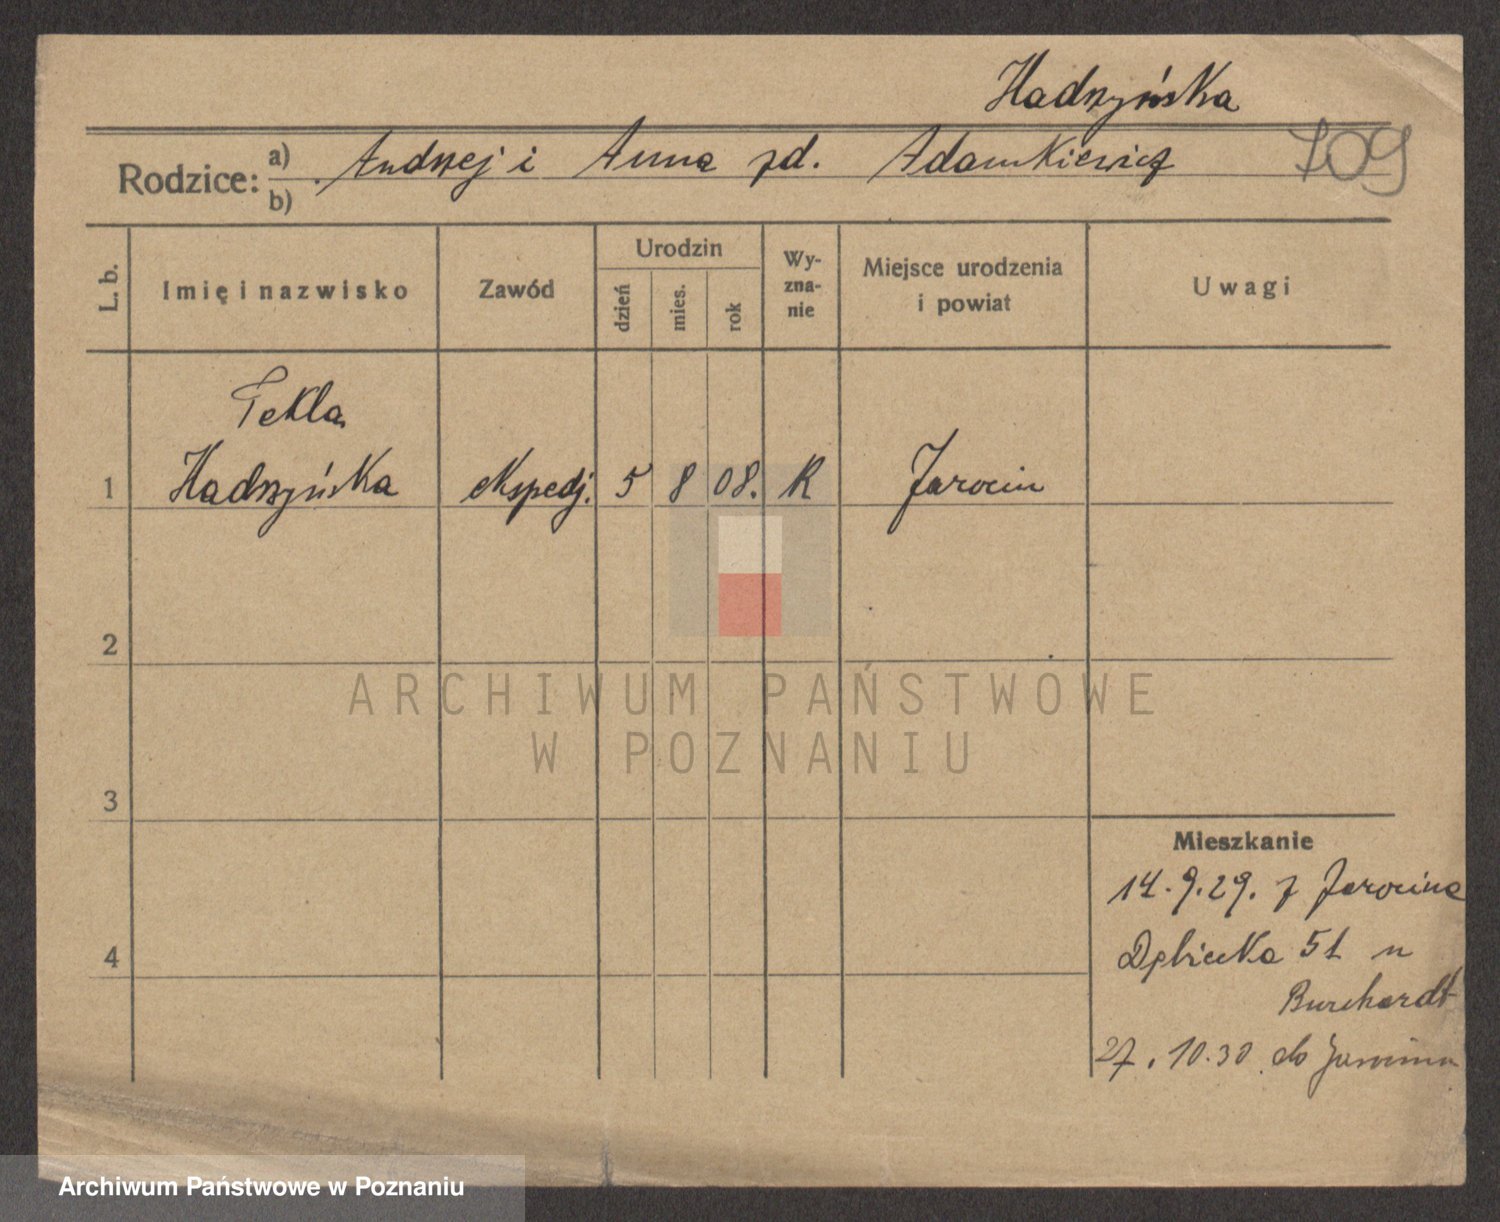 Hadrzyńska
Rodzice: a) Andrzej i Anna zd. Adamkiewicz 709
b)
L. b. Imię i nazwisko Zawód Urodzin dzień mies. rok Wyznanie Miejsce urodzenia i powiat Uwagi
Tekla
1 Hadrzyńska ekspedj. 5 8 08. R Jarocin
2
ARCHIWUM PAŃSTWOWE
W POZNANIU
3
Mieszkanie
14.9.29. z Jarocina
4 Dębiecka 51 u
Burchardt
27.10.30 do Jarocina
Archiwum Państwowe w Poznaniu